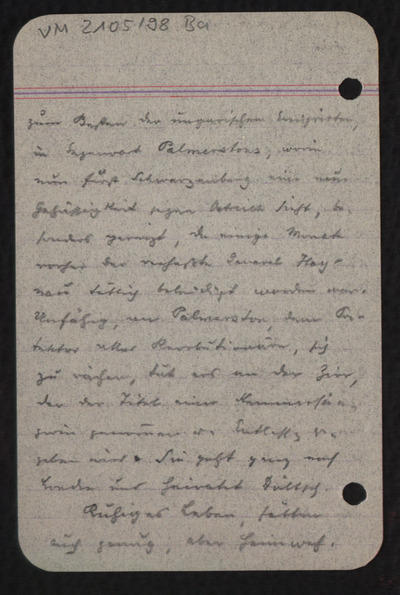 VM 2105/98 Ba
zum Besten der ungarischen Emigrierten,
in Gegenwart Palmerstons, worin
nun Fürst Schwarzenberg eine neue
Gehässigkeit gegen Österreich sieht, be-
sonders gereizt, da einige Monate
vorher der verhasste General Hay-
nau tätlich beleidigt worden war.
Unfähig, an Palmerston, dem Pro-
tektor aller Revolutionäre, sich
zu rächen, tut er's an der Zier,
der der Titel einer Kammersän-
gerin genommen u. Entlassg ge-
geben wird. Sie geht ganz nach
London und heiratet
Ruhiges Leben, hätten
auch genug, aber Heimweh.